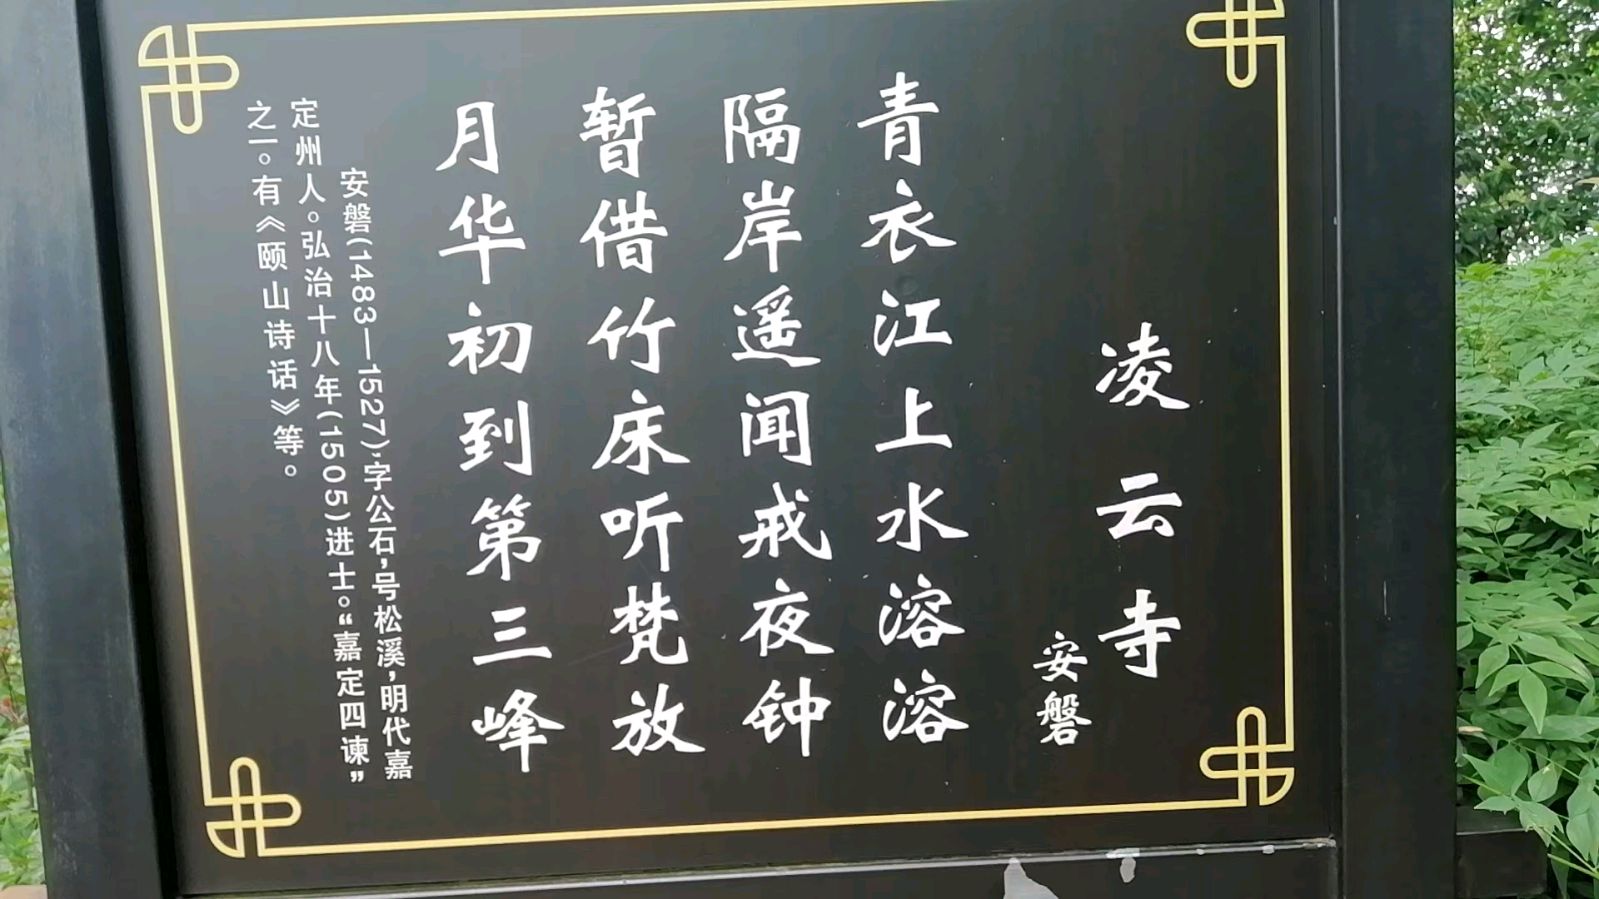 凌云寺
安磐
青衣江上水溶溶
隔岸遥闻戒夜钟
暂借竹床听梵放
月华初到第三峰
安磐(1483—1527),字公石,号松溪,明代嘉
定州人。弘治十八年(1505)进士。“嘉定四谏”
之一。有《颐山诗话》等。